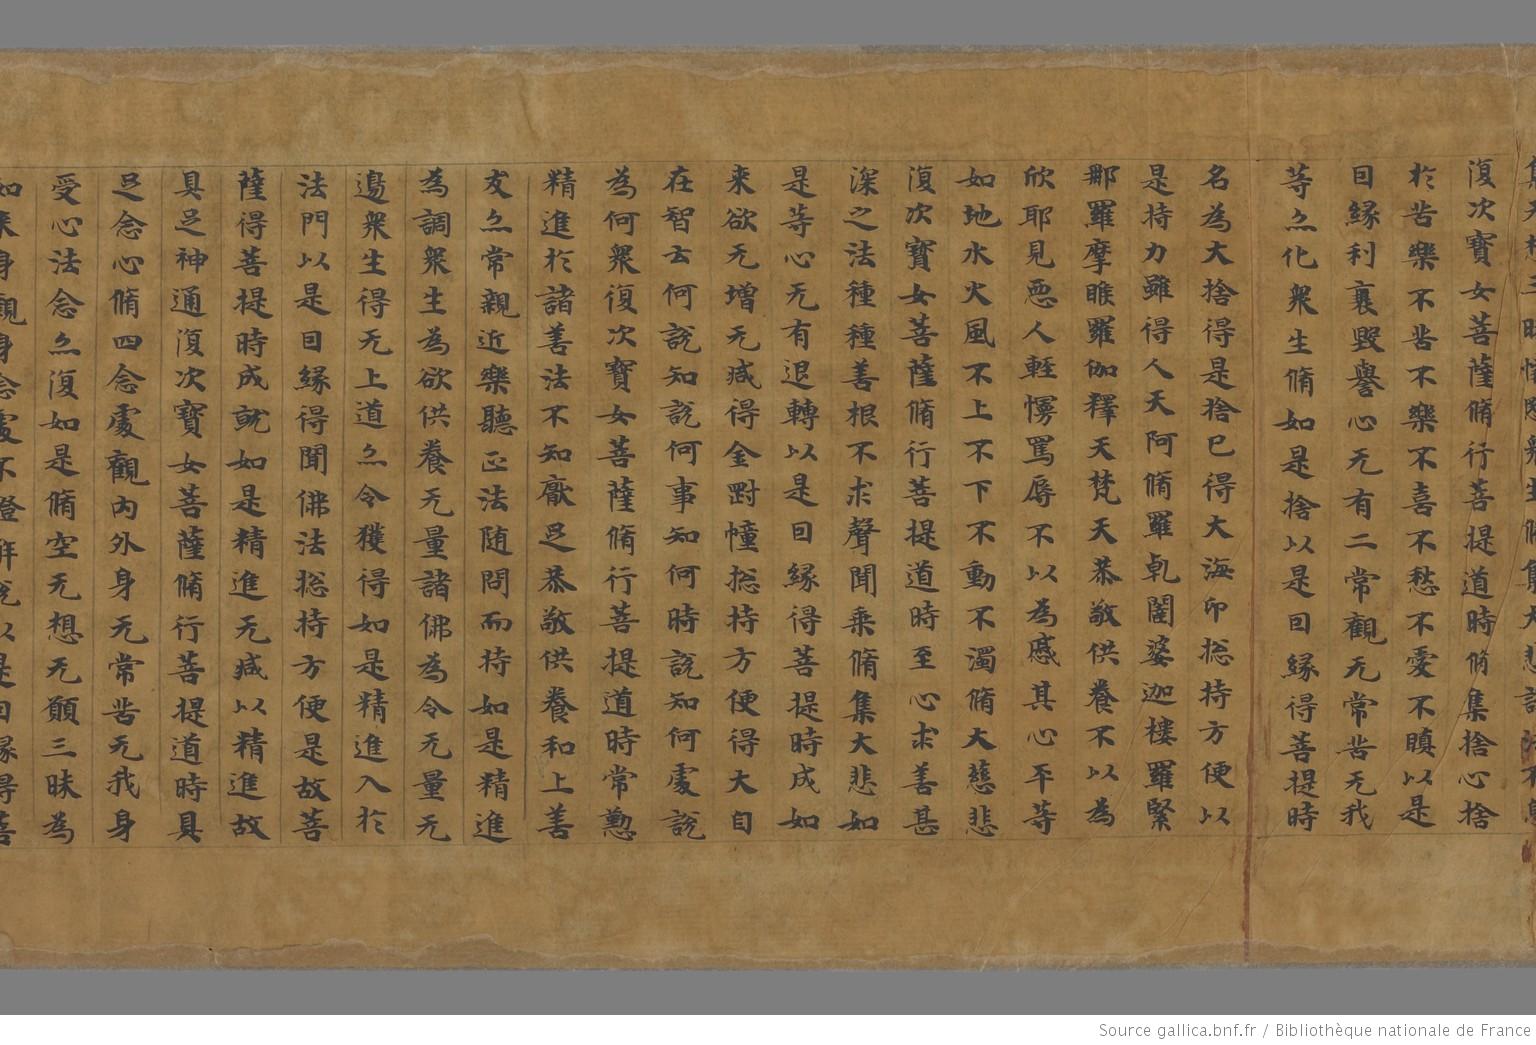 復次寶女菩薩脩行菩提道時脩集捨心捨
於苦樂不苦不樂不喜不愁不愛不瞋以是
因緣利襄毀譽心无有二常觀无常苦无我
等亦化衆生脩如是捨以是因緣得菩提時
名為大捨得是捨已得大海印捴持方便以
是持力雖得人天阿脩羅乹闥婆迦樓羅緊
那羅摩睺羅伽釋天梵天恭敬供養不以為
欣耶見惡人輕慢罵辱不以為慼其心平等
如地水火風不上不下不動不濁脩大慈悲
復次寶女菩薩脩行菩提道時至心求善甚
深之法種種善根不求聲聞乗脩集大悲如
是等心无有退轉以是因緣得菩提時成如
来欲无增无減得金對幢捴持方便得大自
在智云何說知說何事知何時說知何處說
為何衆復次寶女菩薩脩行菩提道時常懃
精進於諸善法不知厭足恭敬供養和上善
友亦常親近樂聽正法随問而持如是精進
為調衆生為欲供養无量諸佛為令无量无
邊衆生得无上道亦令獲得如是精進入於
法門以是因緣得聞佛法捴持方便是故菩
薩得菩提時成就如是精進无減以精進故
具足神通復次寶女菩薩脩行菩提道時具
足念心脩四念處觀內外身无常苦无我身
受心法念亦復如是脩空无想无願三昧為